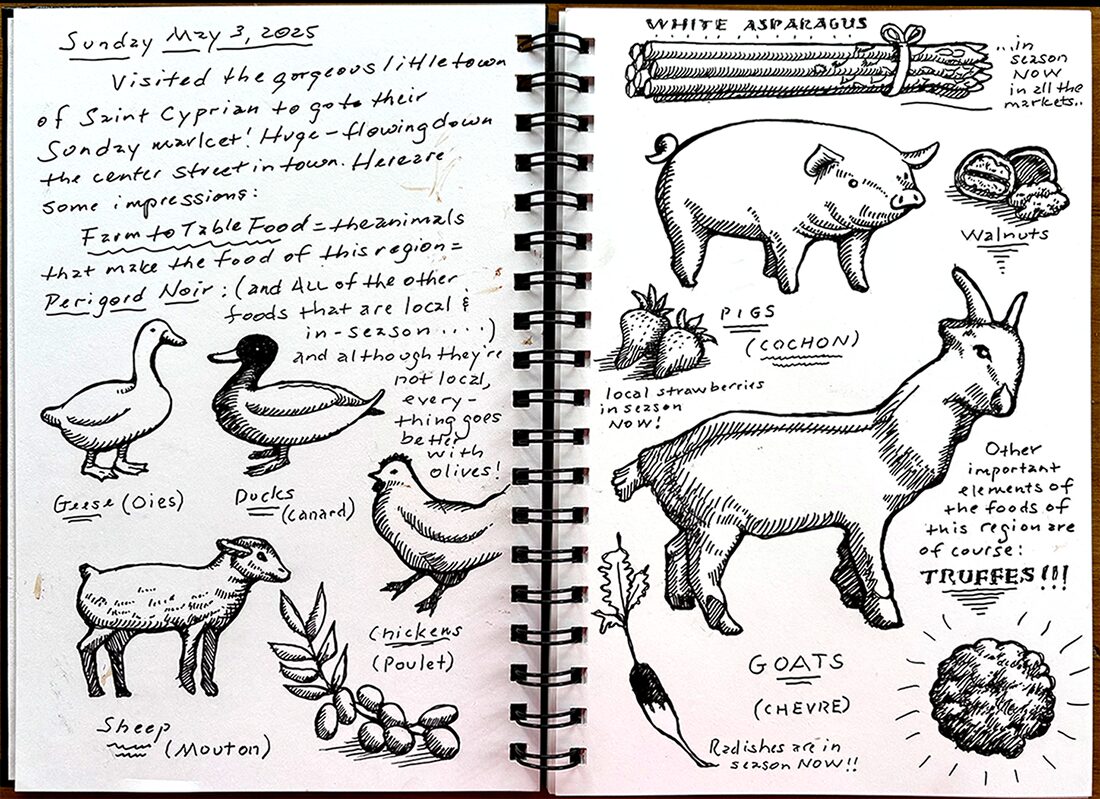 Sunday May 3, 2025
Visited the gorgeous little town
of Saint Cyprian to go to their
Sunday market! Huge - flowing down
the center street in town. Here are
some impressions:
Farm to Table Food = the animals
that make the food of this region =
Perigord Noir: (and ALL of the other
foods that are local &
in-season.....)
and although they're
not local,
every-
thing goes
better
with
olives!
Geese (Oies)
Ducks
(Canard)
Chickens
(Poulet)
Sheep
(Mouton)
WHITE ASPARAGUS
...in
season
NOW
in all the
markets..
Walnuts
PIGS
(COCHON)
local strawberries
in season
NOW!
Other
important
elements of
the foods of
this region are
of course:
TRUFFES!!!
GOATS
(CHEVRE)
Radishes are in
season NOW!!